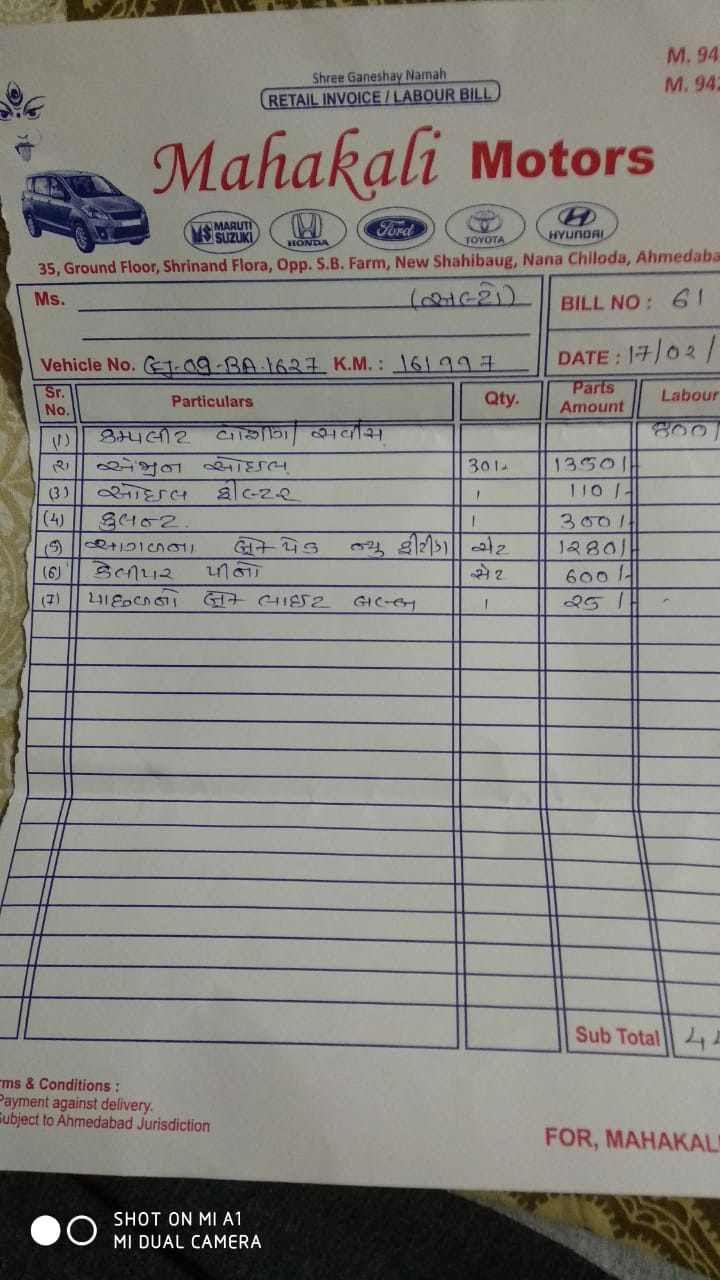 M. 94
M. 94
Shree Ganeshay Namah
RETAIL INVOICE / LABOUR BILL
Mahakali Motors
MARUTI SUZUKI HONDA Ford TOYOTA HYUNDAI
35, Ground Floor, Shrinand Flora, Opp. S.B. Farm, New Shahibaug, Nana Chiloda, Ahmedaba
Ms. (અલ્ટો) BILL NO : 61
Vehicle No. GJ-09-BA.1627 K.M. : 161997 DATE : 17/02/
Sr. No. Particulars Qty. Parts Amount Labour
(1) કમ્પલીટ વોશીંગ/સર્વીસ 800/
(૨) એન્જીન ઓઈલ 1350/-
(3) ઓઈલ ફીલ્ટર 1 110/-
(4) કુલન્ટ. 1 300/-
(5) આગળના બ્રેક પેડ ન્યુ ફીટીંગ સેટ 1280/-
(6) કેલીપર પીનો સેટ 600/-
(7) પાછળનો બ્રેક લાઈટ બલ્બ 1 25/-
Sub Total 4
rms & Conditions :
Payment against delivery.
Subject to Ahmedabad Jurisdiction
FOR, MAHAKAL
SHOT ON MI A1
MI DUAL CAMERA